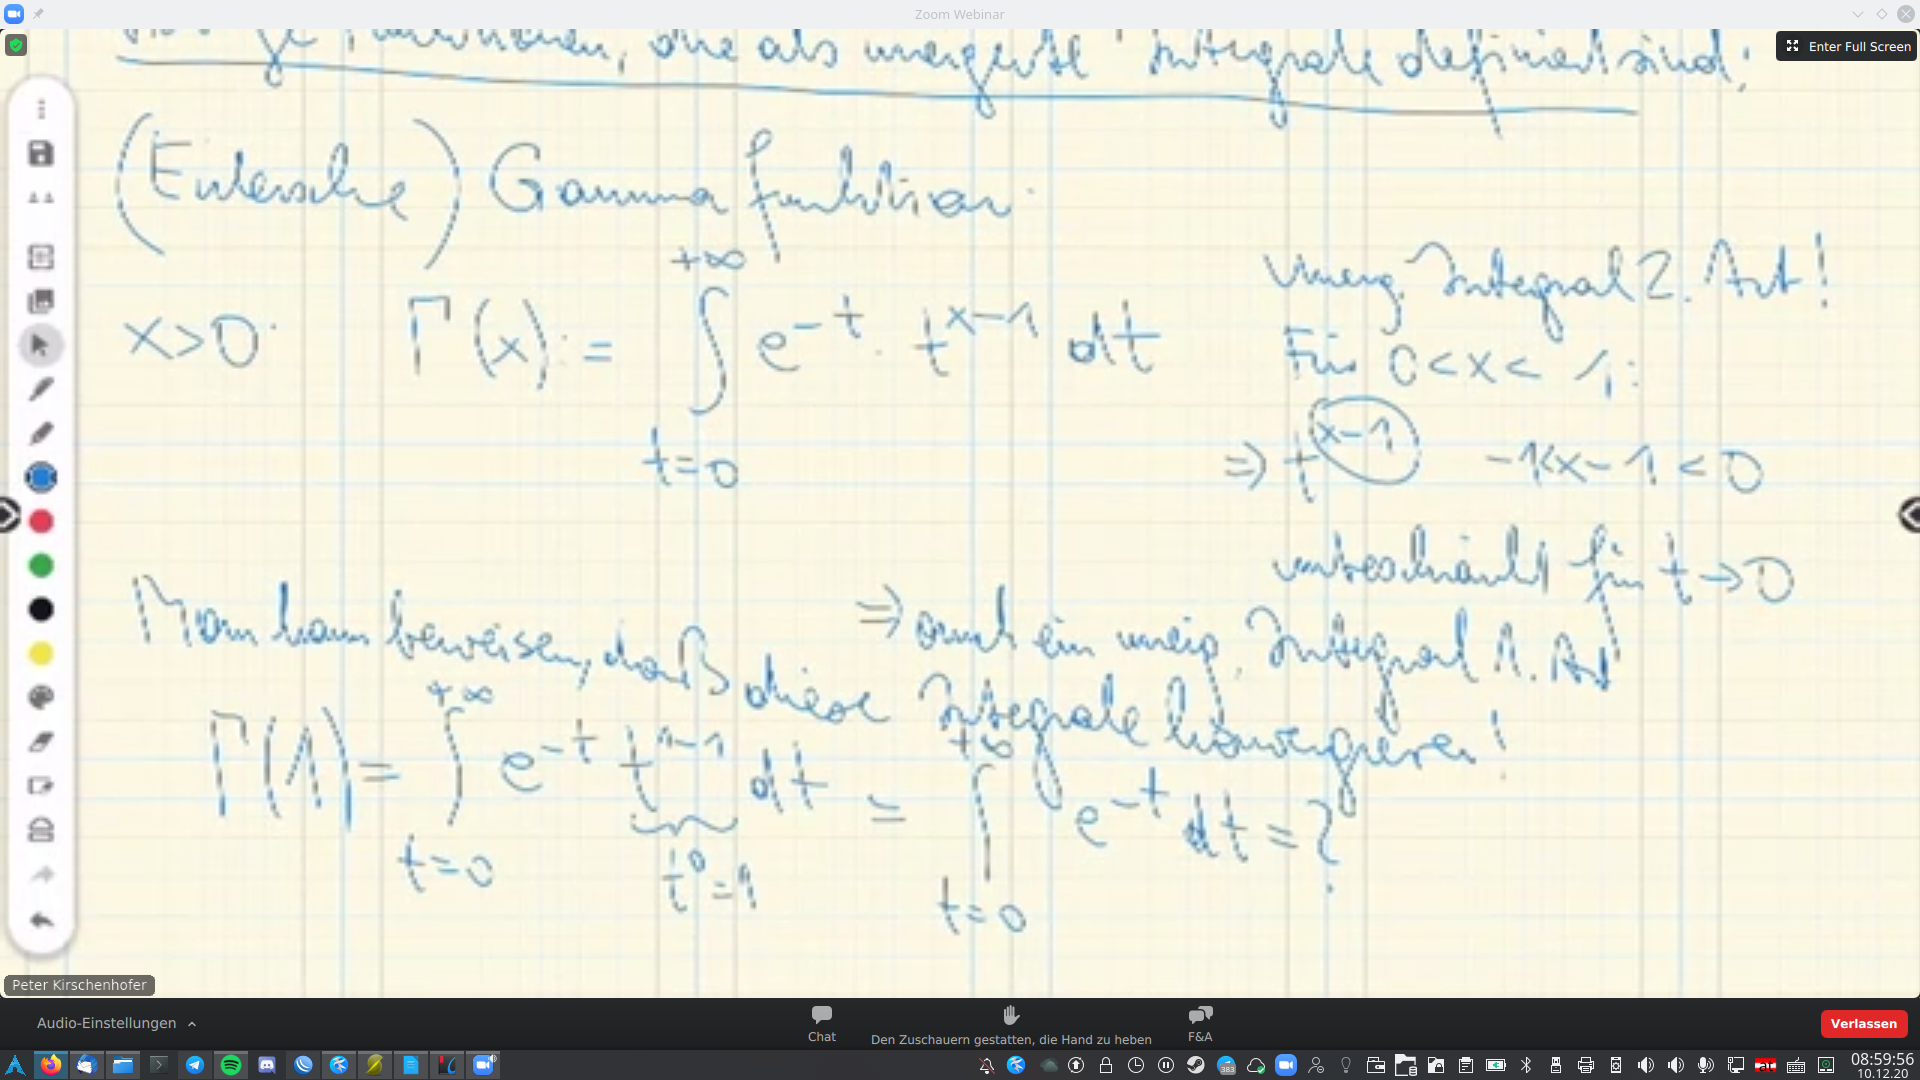 Zoom Webinar
Enter Full Screen
Funktionen, die als uneigentl. Integrale definiert sind:
(Eulersche) Gammafunktion:
+∞
uneig. Integral 2. Art!
x>0: Γ(x) := ∫ e^{-t} · t^{x-1} dt
t=0
Für 0<x<1:
⇒ t^{x-1} -1<x-1<0
unbeschränkt für t→0
⇒ auch ein uneig. Integral 1. Art
Man kann beweisen, daß diese Integrale konvergieren!
+∞ +∞
Γ(1) = ∫ e^{-t} t^{1-1} dt = ∫ e^{-t} dt = ?
t=0 t^0=1 t=0
Peter Kirschenhofer
Audio-Einstellungen
Chat
Den Zuschauern gestatten, die Hand zu heben
F&A
Verlassen
383
08:59:56
10.12.20